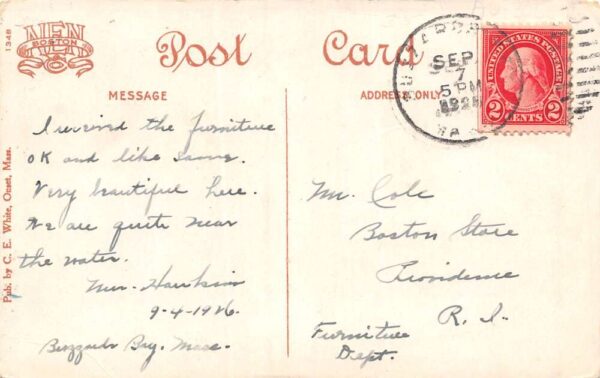 1348
NEN
BOSTON
Post Card
MESSAGE
ADDRESS ONLY
SEP
7
5 PM
UNITED STATES POSTAGE
2 CENTS 2
I received the furniture
OK and like same.
Very beautiful here.
We are quite near
the water.
Mrs. Hawkins
9-4-1926.
Buzzards Bay, Mass.
Mr. Cole
Boston Store
Providence
R. I.
Furniture
Dept.
Pub. by C. E. White, Onset, Mass.